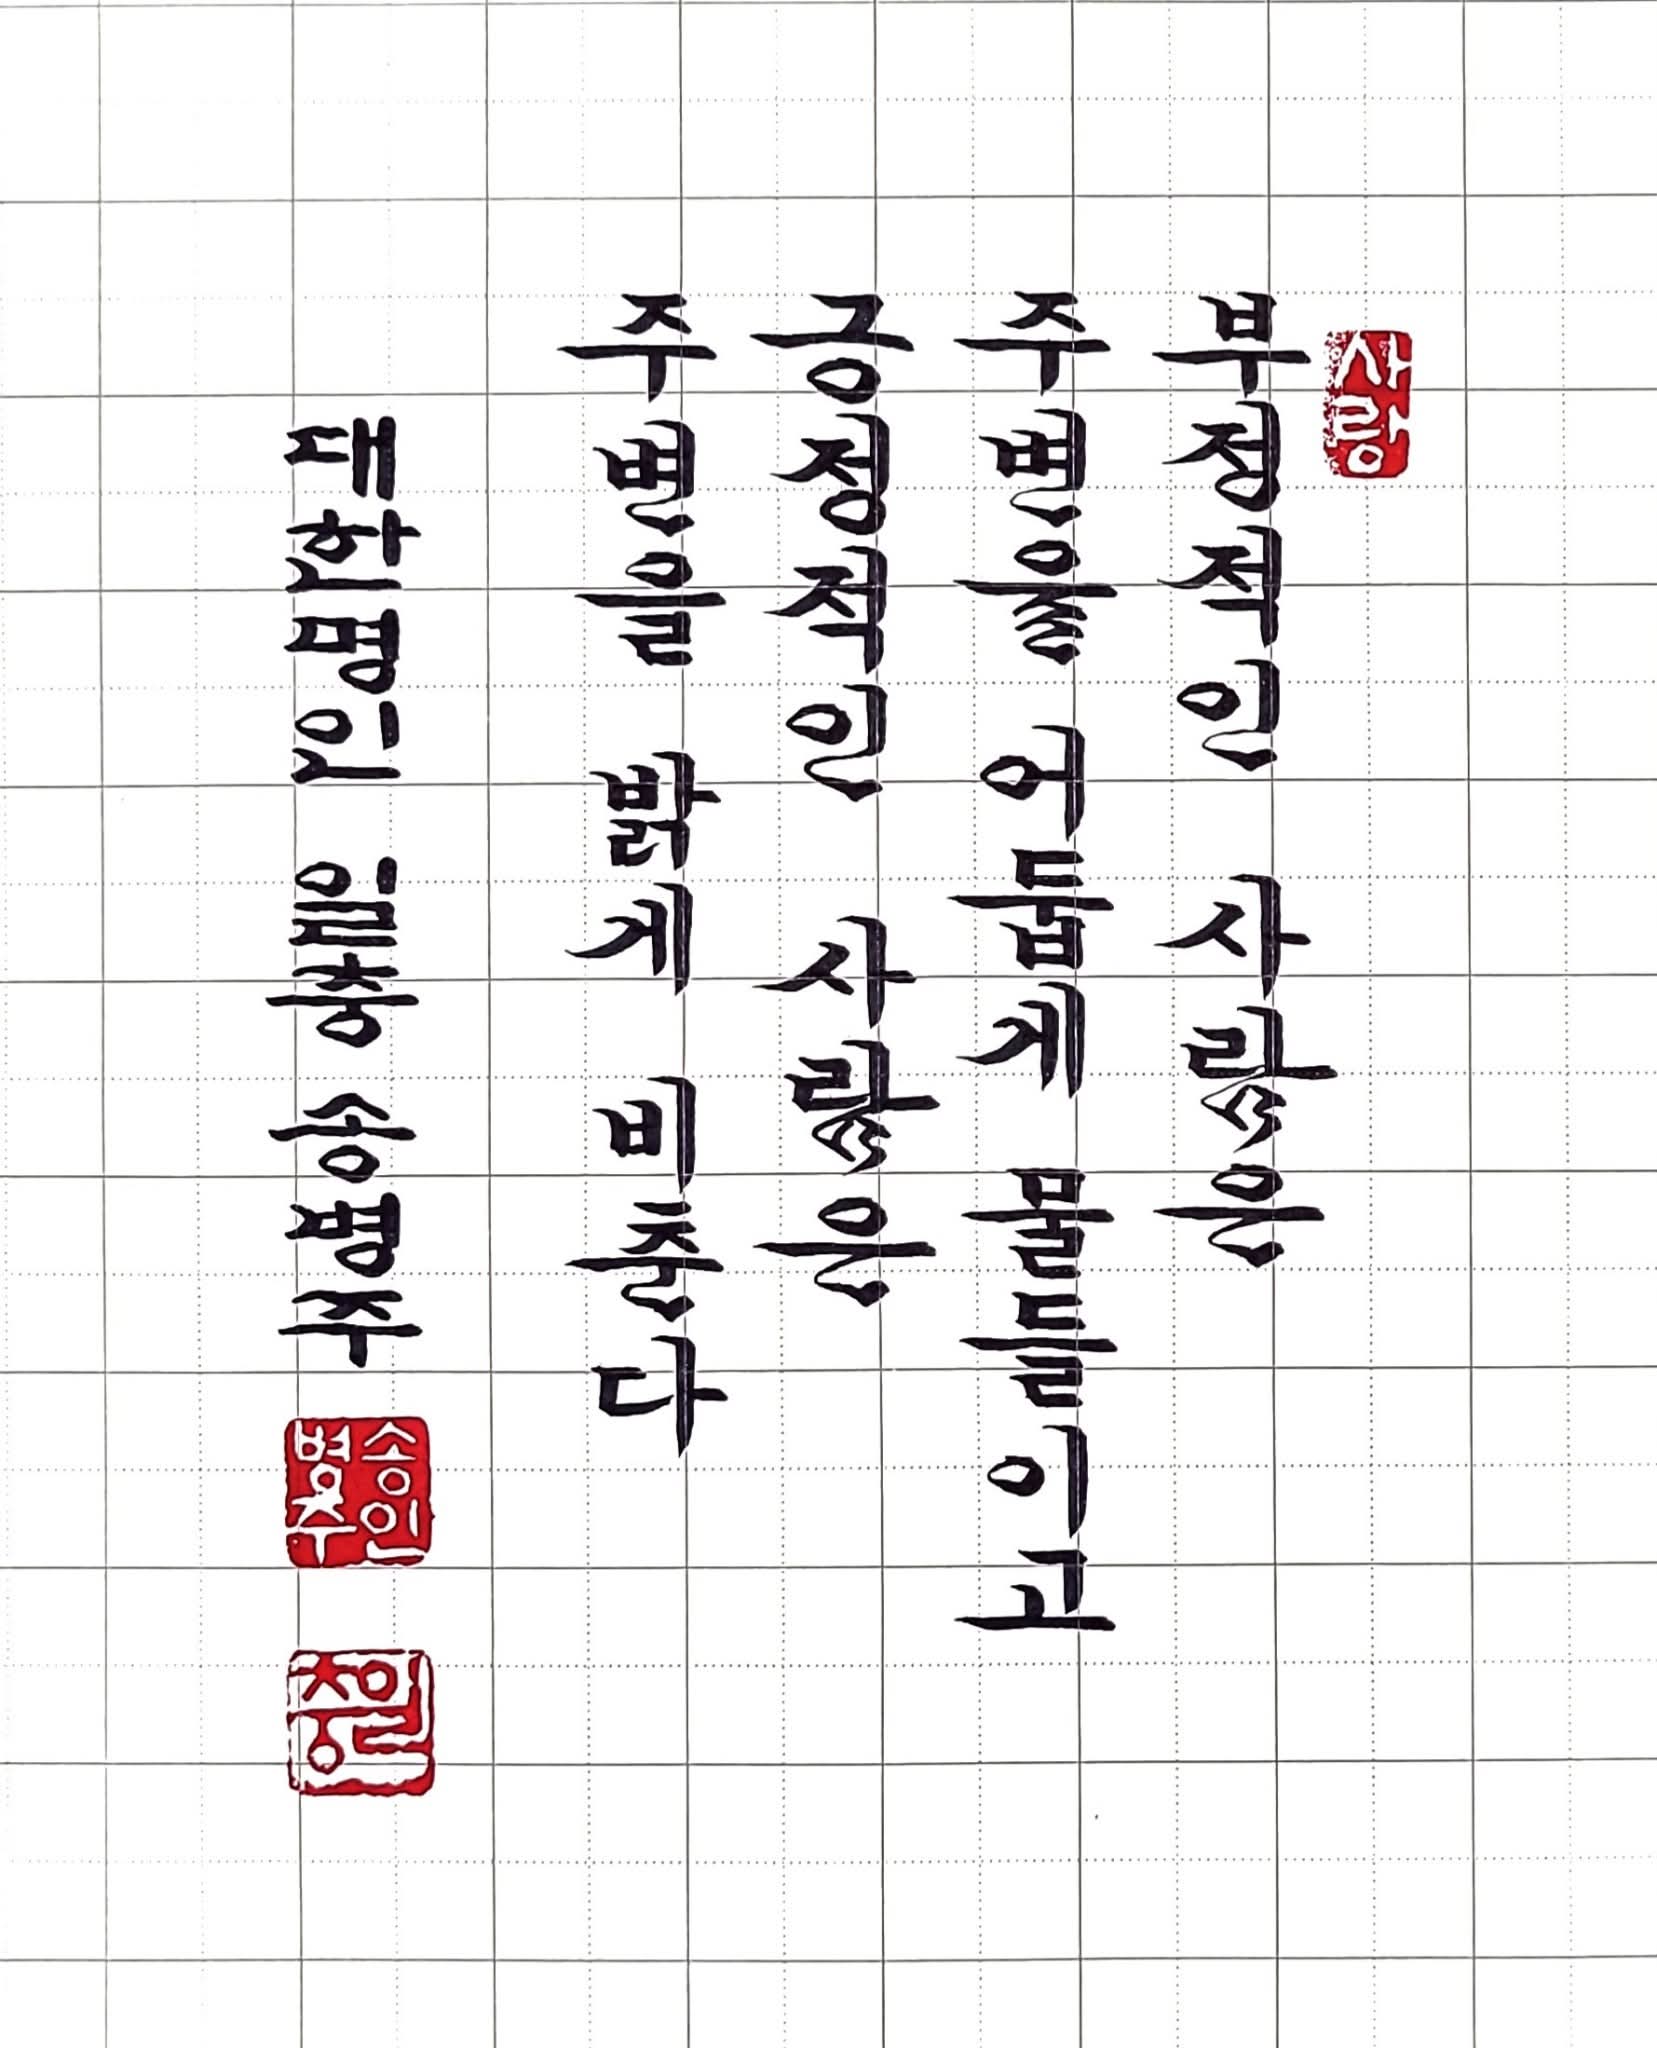 사랑
부정적인 사람은
주변을 어둡게 물들이고
긍정적인 사람은
주변을 밝게 비춘다
대한명인 일충 송병주
송인병주
일충